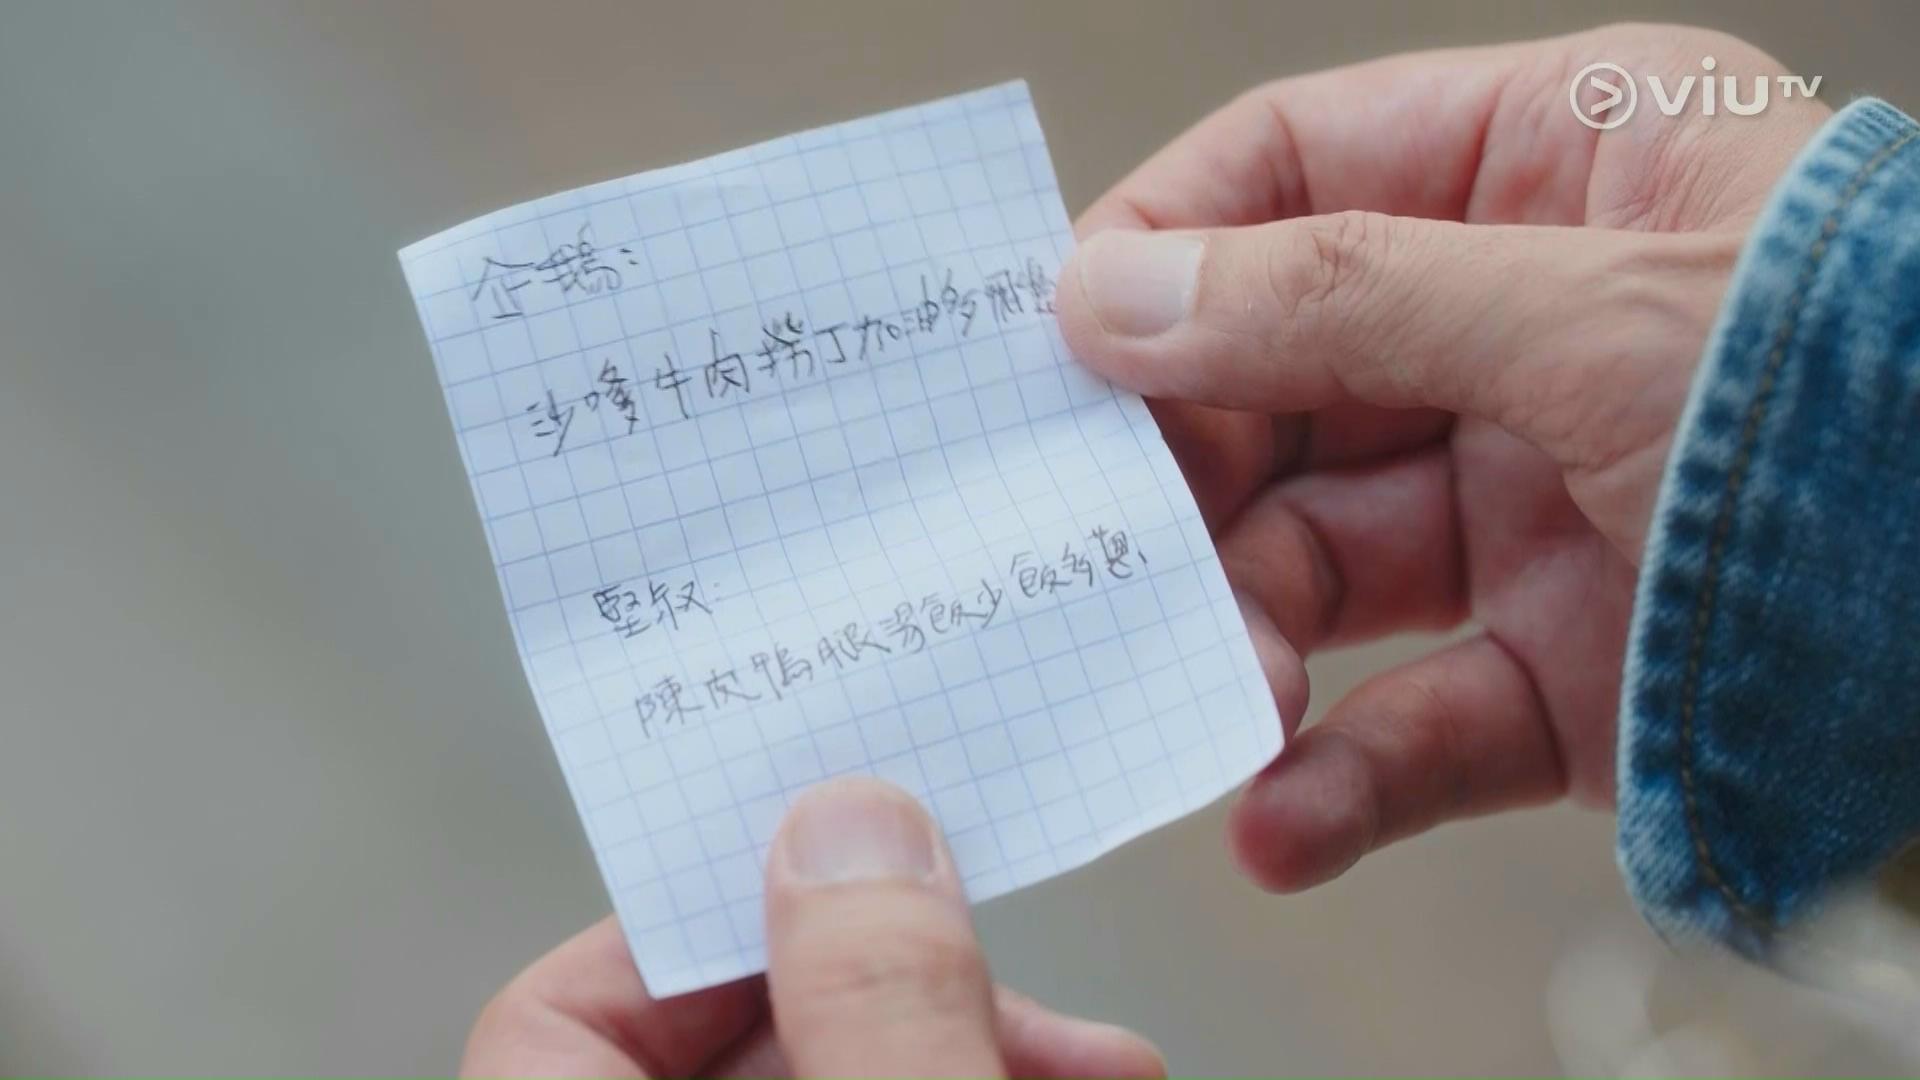 viuTV
企鵝：
沙嗲牛肉撈丁加油多
堅叔：
陳皮鴨腿湯飯少飯多蔥